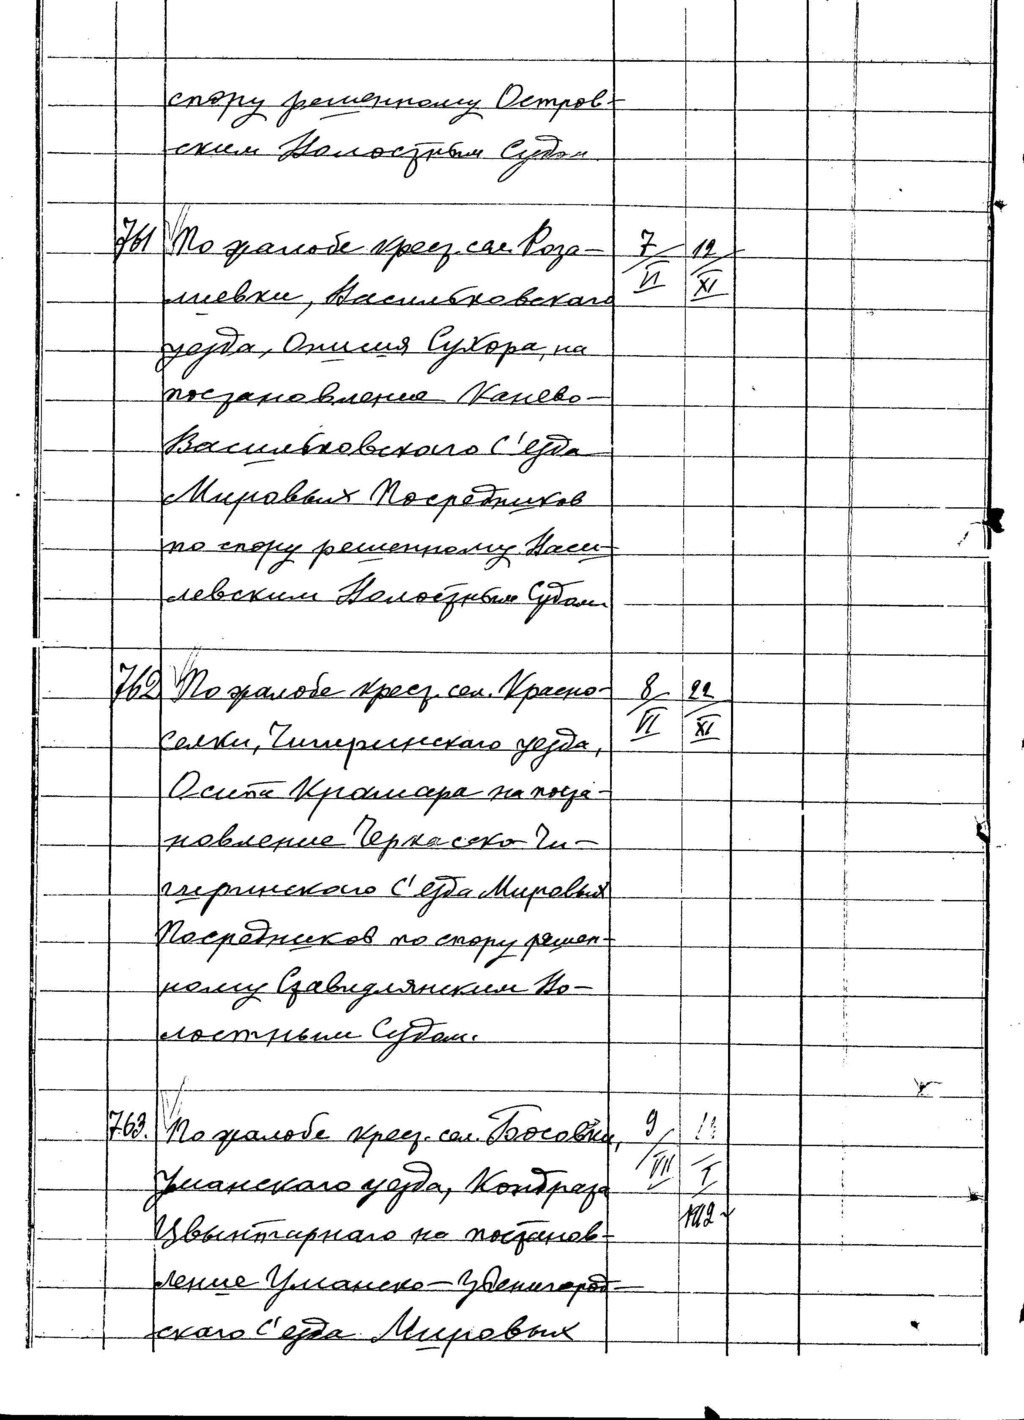 спору решенному Остров-
ским Волостным Судом
761 По жалобе крест. сел. Роза- 7/VI 12/XI
лиевки, Васильковского
уезда, Онисия Сухора, на
постановление Канево-
Васильковского С'езда
Мировых Посредников
по спору решенному Васи-
левским Волостным Судом.
762 По жалобе крест. сел. Красно- 8/VI 22/XI
селки, Чигиринского уезда,
Осипа Крамара на поста-
новление Черкасско-Чи-
гиринского С'езда Мировых
Посредников по спору решен-
ному Ставидлянским Во-
лостным Судом.
763. По жалобе крест. сел. Босовки, 9/VII I
Уманского уезда, Кондрата
Цвынтарного на постанов-
ление Уманско-Звенигород-
ского С'езда Мировых